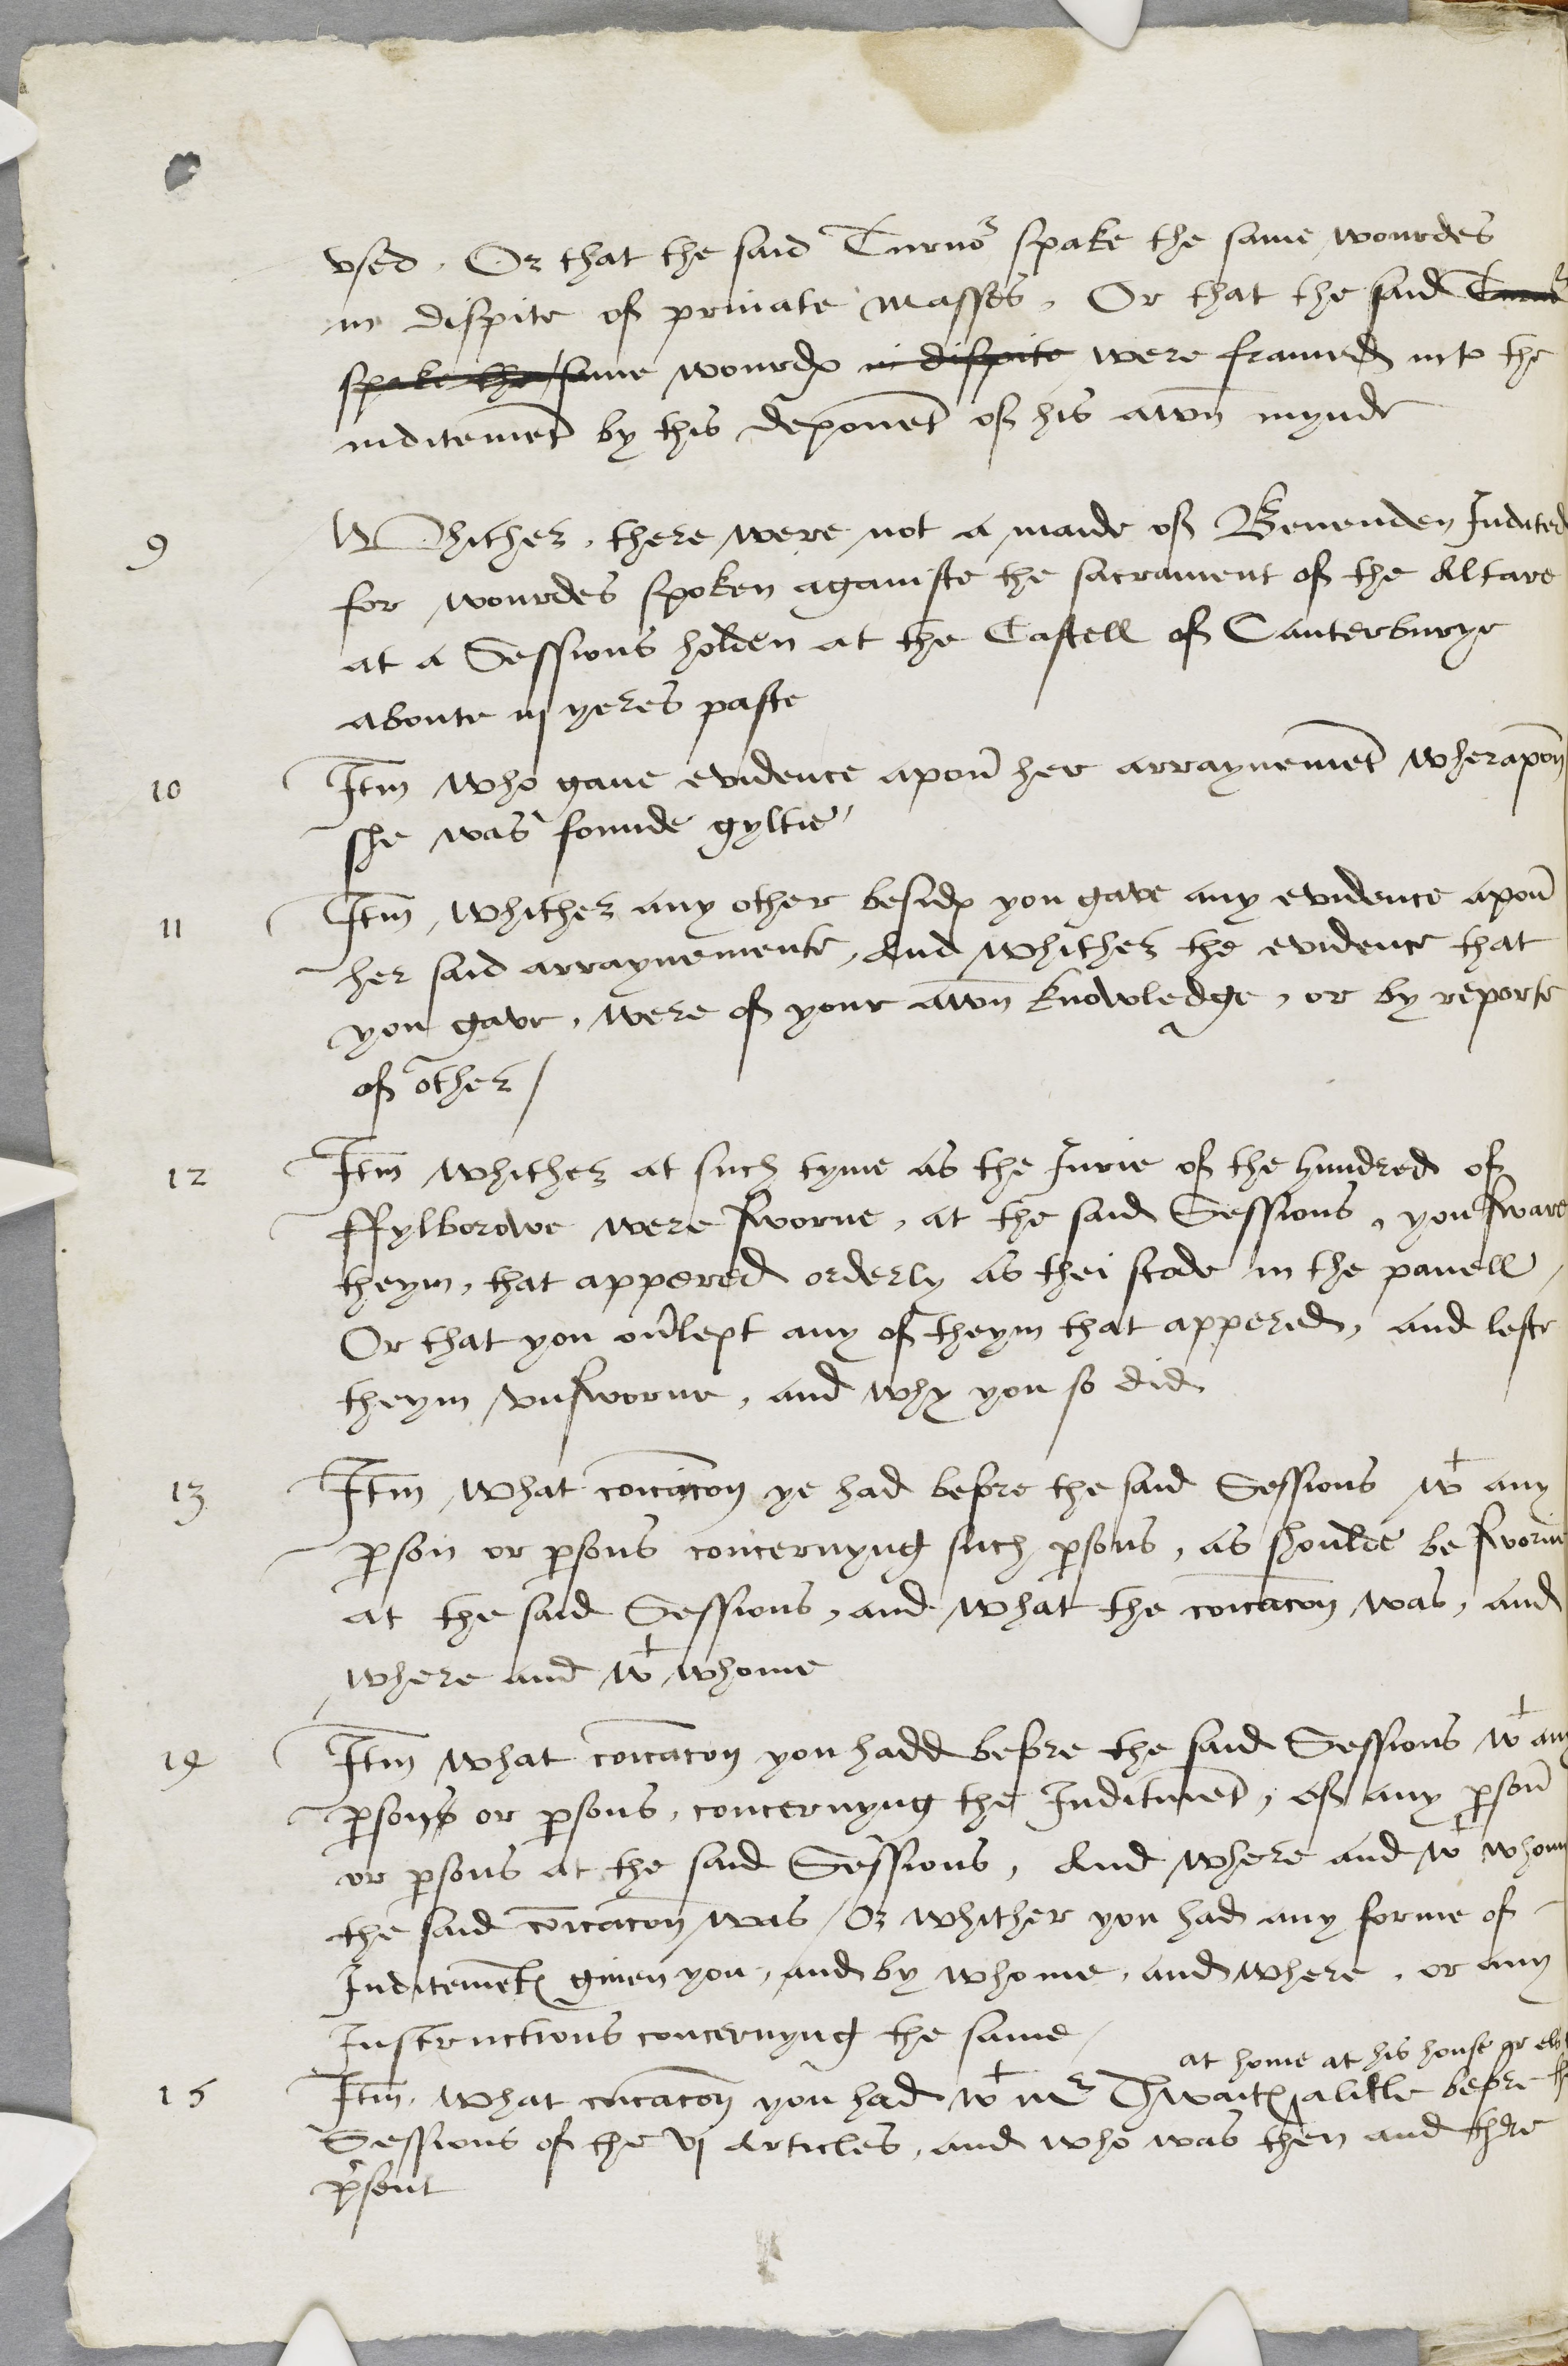 vsed, Or that the said Turno^r spake the same wourdes
in dispite of private masses, Or that the said Turno^r
spake the same wourdꝭ in dispite were framed into the
inditemēt by this deponēt of his awn̄ mynde
9 Whither, there were not a maide of Benenden Indited
for wourdes spoken againste the sacrament of the Altare
at a Sessions holden at the Castell of Canterburye
aboute iij yeres paste
10 Itm̄ who gaue evidence apon̄ her arraynemēt wherapon̄
she was founde gyltie
11 Itm̄, whither any other besidꝭ you gave any evidence apon̄
her said arraynemente, And whither the evidence that
you gave, were of your awn̄ knowledge, or by reporte
of other /
12 Itm̄ whither at such tyme as the Jurie of the hundred of
ffylborowe were sworne, at the said Sessions, you sware
theym, that appered orderly as thei stode in the panell,
Or that you ou̔lept any of theym that appered, and lefte
theym vnsworne, and why you so did
13 Itm̄, what cōicacōn ye had before the said Sessions w^t any
ꝑson or ꝑsons concernyng such ꝑsons, as shoulde be sworne
at the said Sessions, and what the cōicacōn was, and
where and w^t whome
14 Itm̄ what cōicacōn you hadd before the said Sessions w^t any
ꝑsons or ꝑsons, concernyng the Inditmēt, of any ꝑson̄
or ꝑsons at the said Sessions, And where and w^t whom
the said cōicacōn was / Or whither you had any forme of
Inditemētꝭ given you, and by whome, and where, or any
Instructions concernyng the same /
at home at his house or els
15 Itm̄, what cōicacōn you had w^t m^r Thwaitꝭ ‸ a litle before
Sessions of the vj Articles, and who was then and there
p̄sent